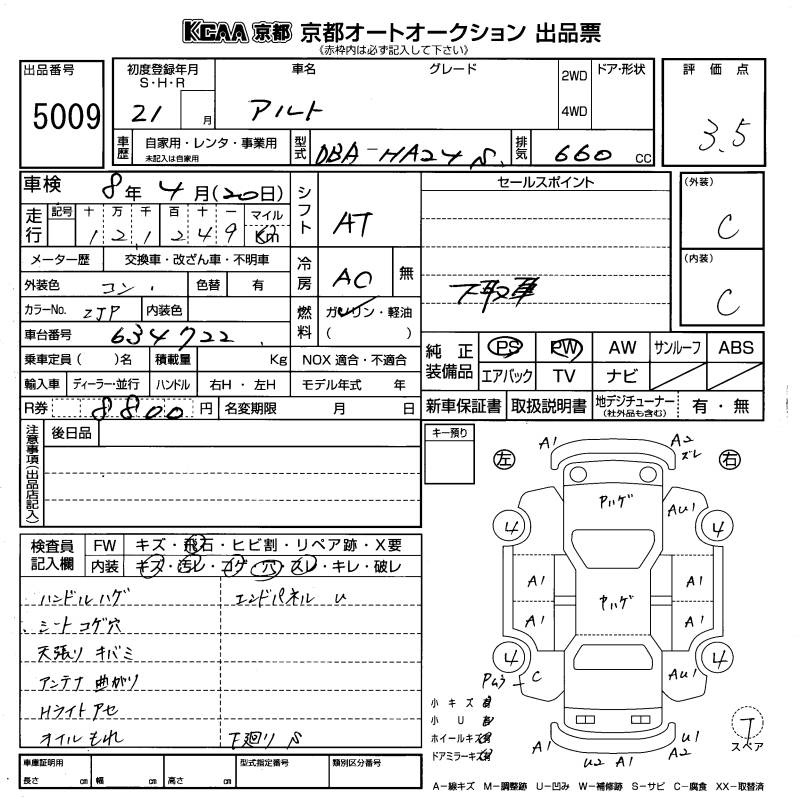 KCAA 京都 京都オートオークション 出品票
《赤枠内は必ず記入して下さい》
出品番号
5009
初度登録年月
S・H・R
21 月
車名
アルト
グレード
2WD
4WD
ドア・形状
評価点
3.5
車歴
自家用・レンタ・事業用
未記入は自家用
型式
DBA-HA24S
排気
660 CC
車検 8年 4月(20日)
走行
記号 十 万 千 百 十 一 マイル
1 2 1 2 4 9 Km
メーター歴 交換車・改ざん車・不明車
外装色 コン 色替 有
カラーNo. ZJP 内装色
車台番号 634722
乗車定員( )名 積載量 Kg
輸入車 ディーラー・並行 ハンドル 右H・左H
R券 8800 円 名変期限 月 日
シフト
AT
冷房
AC 無
燃料
ガソリン・軽油
( )
NOX 適合・不適合
モデル年式 年
セールスポイント
下取車
(外装)
C
(内装)
C
純正装備品
PS PW AW サンルーフ ABS
エアバック TV ナビ
新車保証書 取扱説明書 地デジチューナー(社外品も含む) 有・無
注意事項(出品店記入)
後日品
キー預り
検査員記入欄
FW キズ・飛石・ヒビ割・リペア跡・X要
内装 キズ・汚レ・コゲ・穴・スレ・キレ・破レ
ハンドルハゲ エンドパネル U
シートコゲ穴
天張りキバミ
アンテナ曲がり
Hライトアセ
オイルもれ 下廻り S
左 右
A1 A2 ズレ
Pハゲ AU1
4 4
A1 A1
Pハゲ
A1 A1
4 4
C AU1
小キズ有
小U有
ホイールキズ有
ドアミラーキズ有
A1 U2 A1 U1 A2
T
スペア
車庫証明用
長さ cm 幅 cm 高さ cm
型式指定番号
類別区分番号
A−線キズ M−調整跡 U−凹み W−補修跡 S−サビ C−腐食 XX−取替済